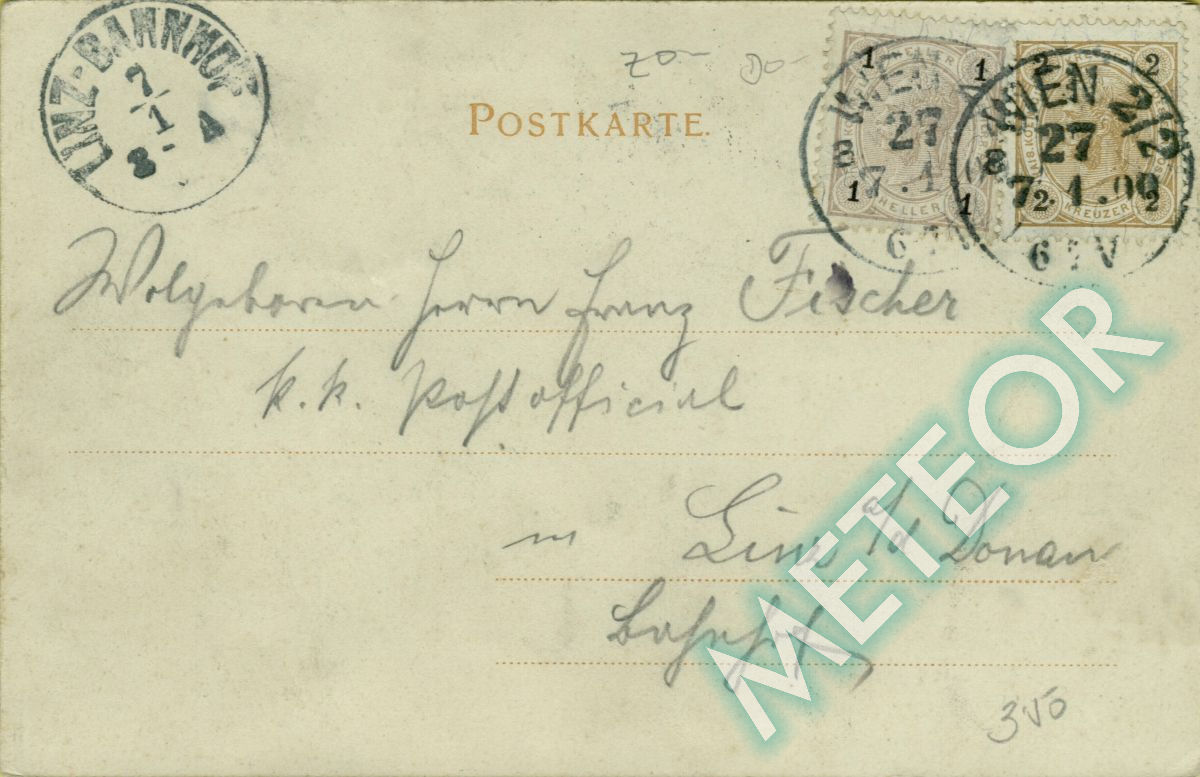 LINZ-BAHNHOF
7/1
8 4
20- 80-
POSTKARTE.
1 HELLER 1
1 1
2 2
2 KREUZER 2
WIEN 2/2
8 27
7.1.00
6 7 V
WIEN
8 27
7.1
6
Wolgeboren Herrn Franz Fischer
k.k. Postofficial
in Linz a/d Donau
Bahnhof
350
METEOR